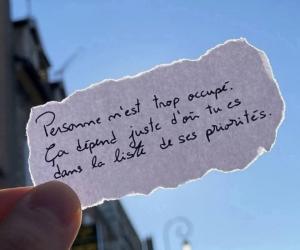 Personne n'est trop occupé.
Ça dépend juste d'où tu es
dans la liste de ses priorités.